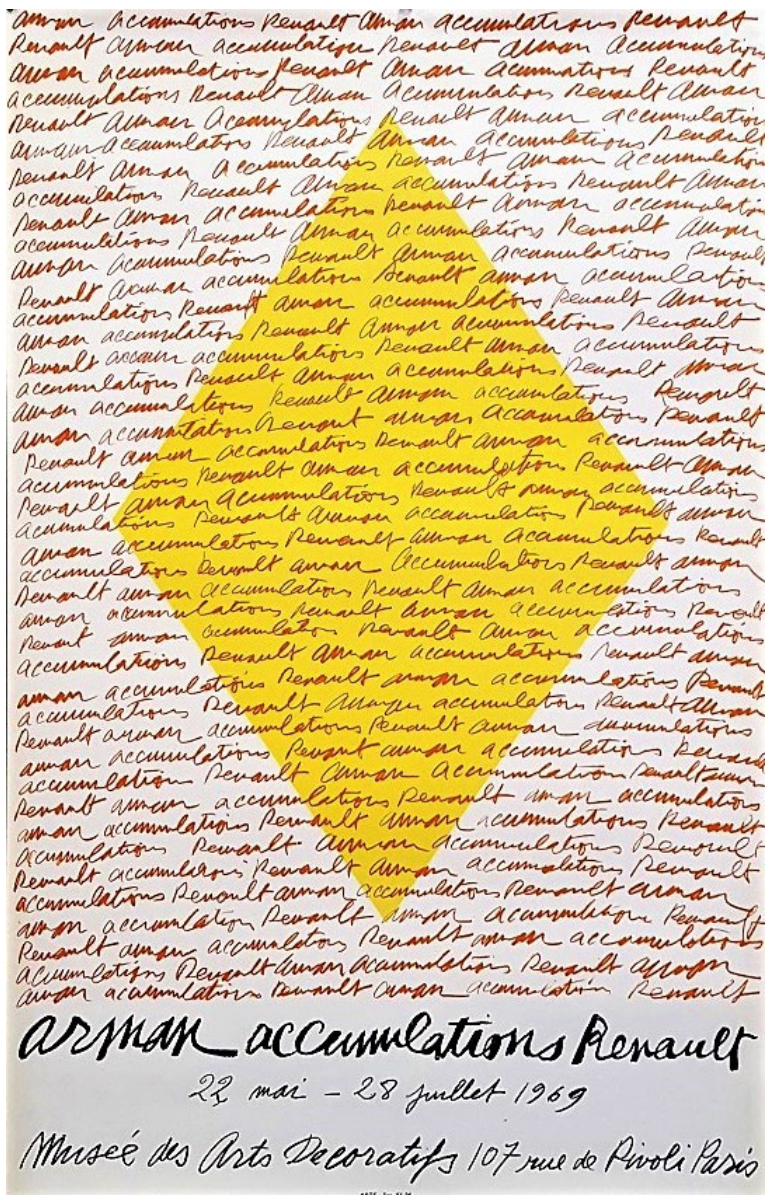 arman accumulations Renault Arman accumulations Renault
Renault arman accumulation Renault arman Accumulations
arman accumulations Renault Arman acummations Renault
accumulations Renault Arman accumulations Renault Arman
Renault Arman Accumulations Renault arman accumulation
arman accumulations Renault Arman accumulations Renault
Renault Arman Accumulations Renault Arman Accumulation
accumulations Renault Arman accumulations Renault Arman
Renault Arman accumulations Renault Arman accumulation
accumulations Renault Arman accumulations Renault Arman
arman accumulations Renault Arman accumulations Renault
Renault Arman accumulations Renault arman accumulations
accumulations Renault arman accumulations Renault arman
arman accumulations Renault Arman accumulations Renault
Renault accumulations Renault arman accumulations
accumulations Renault arman accumulations Renault arman
arman accumulations Renault arman accumulations Renault
arman accumulations Renault arman accumulations Renault
Renault arman accumulations Renault arman accumulations
accumulations Renault arman accumulations Renault arman
Renault arman accumulations Renault arman accumulations
accumulations Renault arman accumulations Renault arman
arman accumulations Renault arman accumulations Renault
accumulations Renault arman accumulations Renault arman
Renault arman accumulations Renault arman accumulations
arman accumulations Renault arman accumulations Renault
Renault arman accumulation Renault arman accumulations
accumulations Renault arman accumulations Renault arman
arman accumulations Renault arman accumulations Renault
accumulations Renault arman accumulations Renault arman
Renault arman accumulations Renault arman accumulations
arman accumulations Renault arman accumulations Renault
accumulations Renault arman accumulations Renault arman
Renault arman accumulations Renault arman accumulations
arman accumulations Renault arman accumulations Renault
accumulations Renault arman accumulations Renault
Renault accumulations Renault arman accumulations Renault
accumulations Renault arman accumulations Renault arman
arman accumulation Renault arman accumulations Renault
Renault arman accumulations Renault arman accumulations
accumulations Renault arman accumulations Renault arman
arman accumulations Renault arman accumulation Renault
arman accumulations Renault
22 mai - 28 juillet 1969
Musée des Arts Decoratifs 107 rue de Rivoli Paris